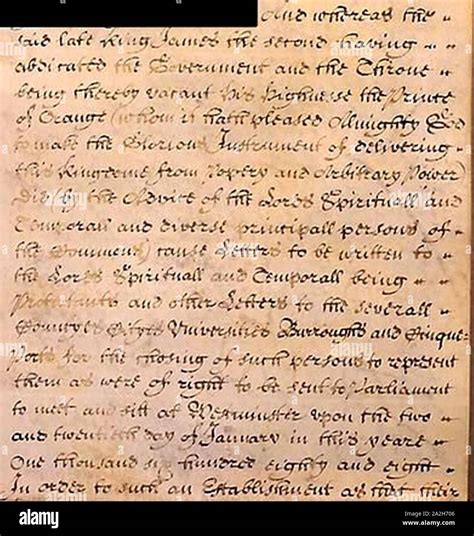 And whereas the
said late King James the second having
abdicated the Government and the Throne
being thereby vacant his Highnesse the Prince
of Orange (whom it hath pleased Allmighty God
to make the Glorious Instrument of delivering
this Kingdome from Popery and Arbitrary Power)
Did by the Advice of the Lords Spirituall and
Temporall and diverse principall persons of
the Commons) cause Letters to be written to
the Lords Spirituall and Temporall being
Protestants and other Letters to the severall
Countyes Cityes Universities Burroughs and Cinque
Ports for the chosing of such persons to represent
them as were of right to be sent to Parliament
to meet and sitt at Westminster upon the two
and twentieth day of January in this yeare
One thousand six hundred eighty and eight
In order to such an Establishment as that their
alamy
Image ID: 2A2H706
www.alamy.com